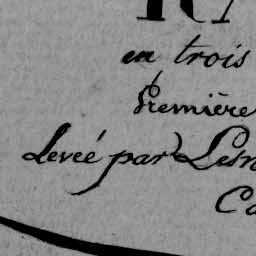 en trois
Première
Leveé par Lesn
Ca